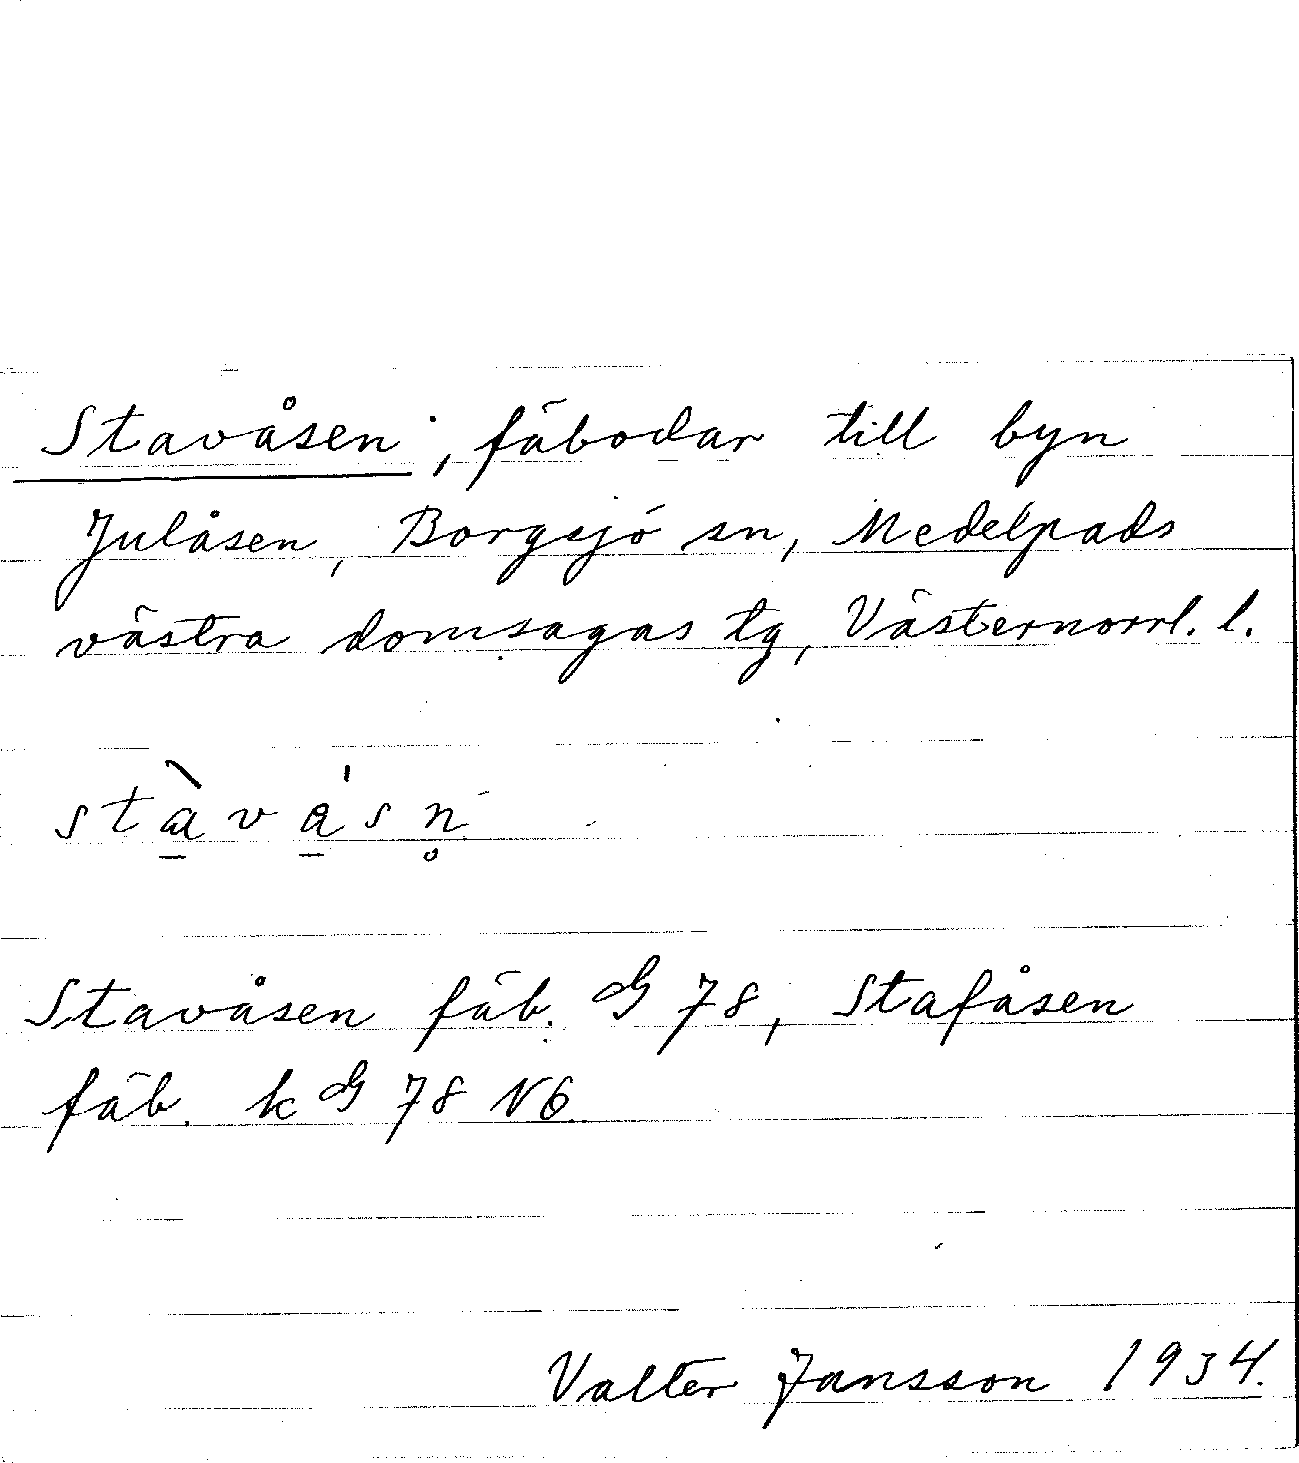 Stavåsen, fäbodar till byn
Julåsen, Borgsjö sn, Medelpads
västra domsagas tg, Västernorrl. l.
stàvåsn̥
Stavåsen fäb. G 78, Stafåsen
fäb. k G 78 N6
Valter Jansson 1934.